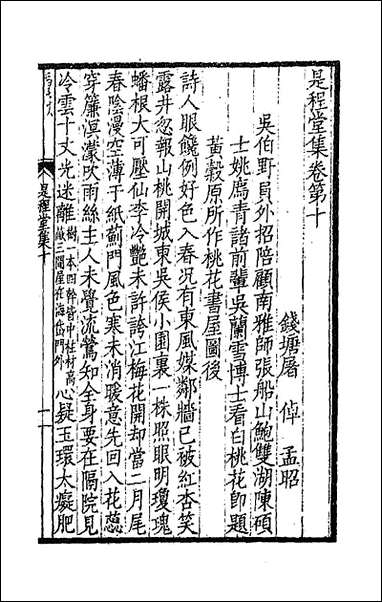 是程堂集卷第十
錢塘屠倬孟昭
吳伯野員外招陪顧南雅師張船山鮑雙湖陳碩
士姚鷹青諸前輩吳蘭雪博士看白桃花即題
黃穀原所作桃花書屋圖後
詩人眼饞例好色入春況有東風媒鄰牆已被紅杏笑
露井忽報山桃開城東吳侯小園裏一株照眼明瓊瑰
蟠根大可壓仙李冷艷未許誇江梅花開却當二月尾
春陰漫空薄于紙薊門風色寒未消暖意先回入花蕊
穿簾溟濛吹雨絲主人未覺流鶯知全身要在隔院見
冷雲十丈光迷離樹一本四幹皆中柱材高蔽三間屋在海岱門外心疑玉環太癡肥
是程堂集十
一